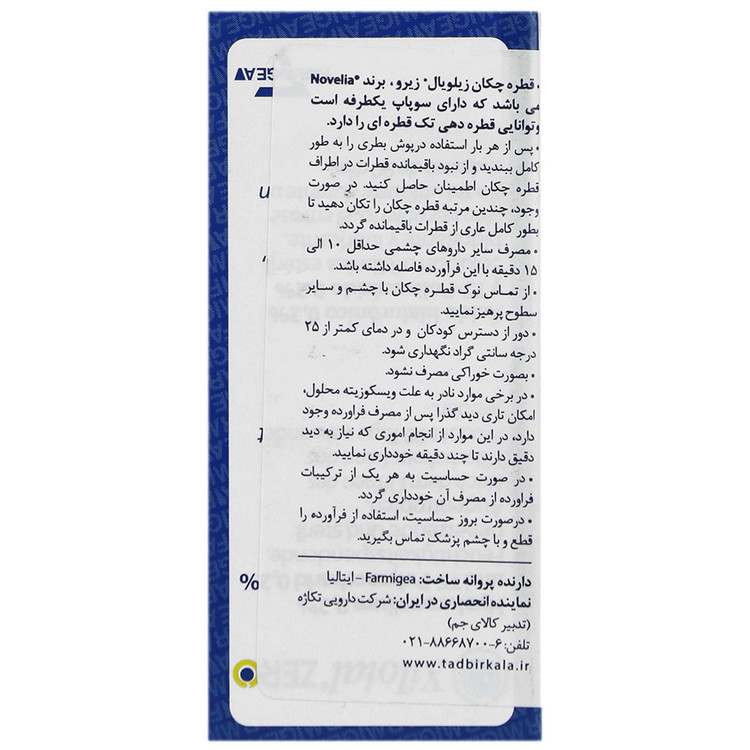 • قطره چکان زیلویال® زیرو، برند Novelia®
می باشد که دارای سوپاپ یکطرفه است
وتوانایی قطره دهی تک قطره ای را دارد.
• پس از هر بار استفاده درپوش بطری را به طور
کامل ببندید و از نبود باقیمانده قطرات در اطراف
قطره چکان اطمینان حاصل کنید. در صورت
وجود، چندین مرتبه قطره چکان را تکان دهید تا
بطور کامل عاری از قطرات باقیمانده گردد.
• مصرف سایر داروهای چشمی حداقل ۱۰ الی
۱۵ دقیقه با این فرآورده فاصله داشته باشد.
• از تماس نوک قطره چکان با چشم و سایر
سطوح پرهیز نمایید.
• دور از دسترس کودکان و در دمای کمتر از ۲۵
درجه سانتی گراد نگهداری شود.
• بصورت خوراکی مصرف نشود.
• در برخی موارد نادر به علت ویسکوزیته محلول،
امکان تاری دید گذرا پس از مصرف فراورده وجود
دارد، در این موارد از انجام اموری که نیاز به دید
دقیق دارند تا چند دقیقه خودداری نمایید.
• در صورت حساسیت به هر یک از ترکیبات
فراورده از مصرف آن خودداری گردد.
• درصورت بروز حساسیت، استفاده از فرآورده را
قطع و با چشم پزشک تماس بگیرید.
دارنده پروانه ساخت: Farmigea – ایتالیا
نماینده انحصاری در ایران: شرکت دارویی تکاژه
(تدبیر کالای جم)
تلفن: ۶-۰۲۱-۸۸۶۶۸۷۰۰
www.tadbirkala.ir
%